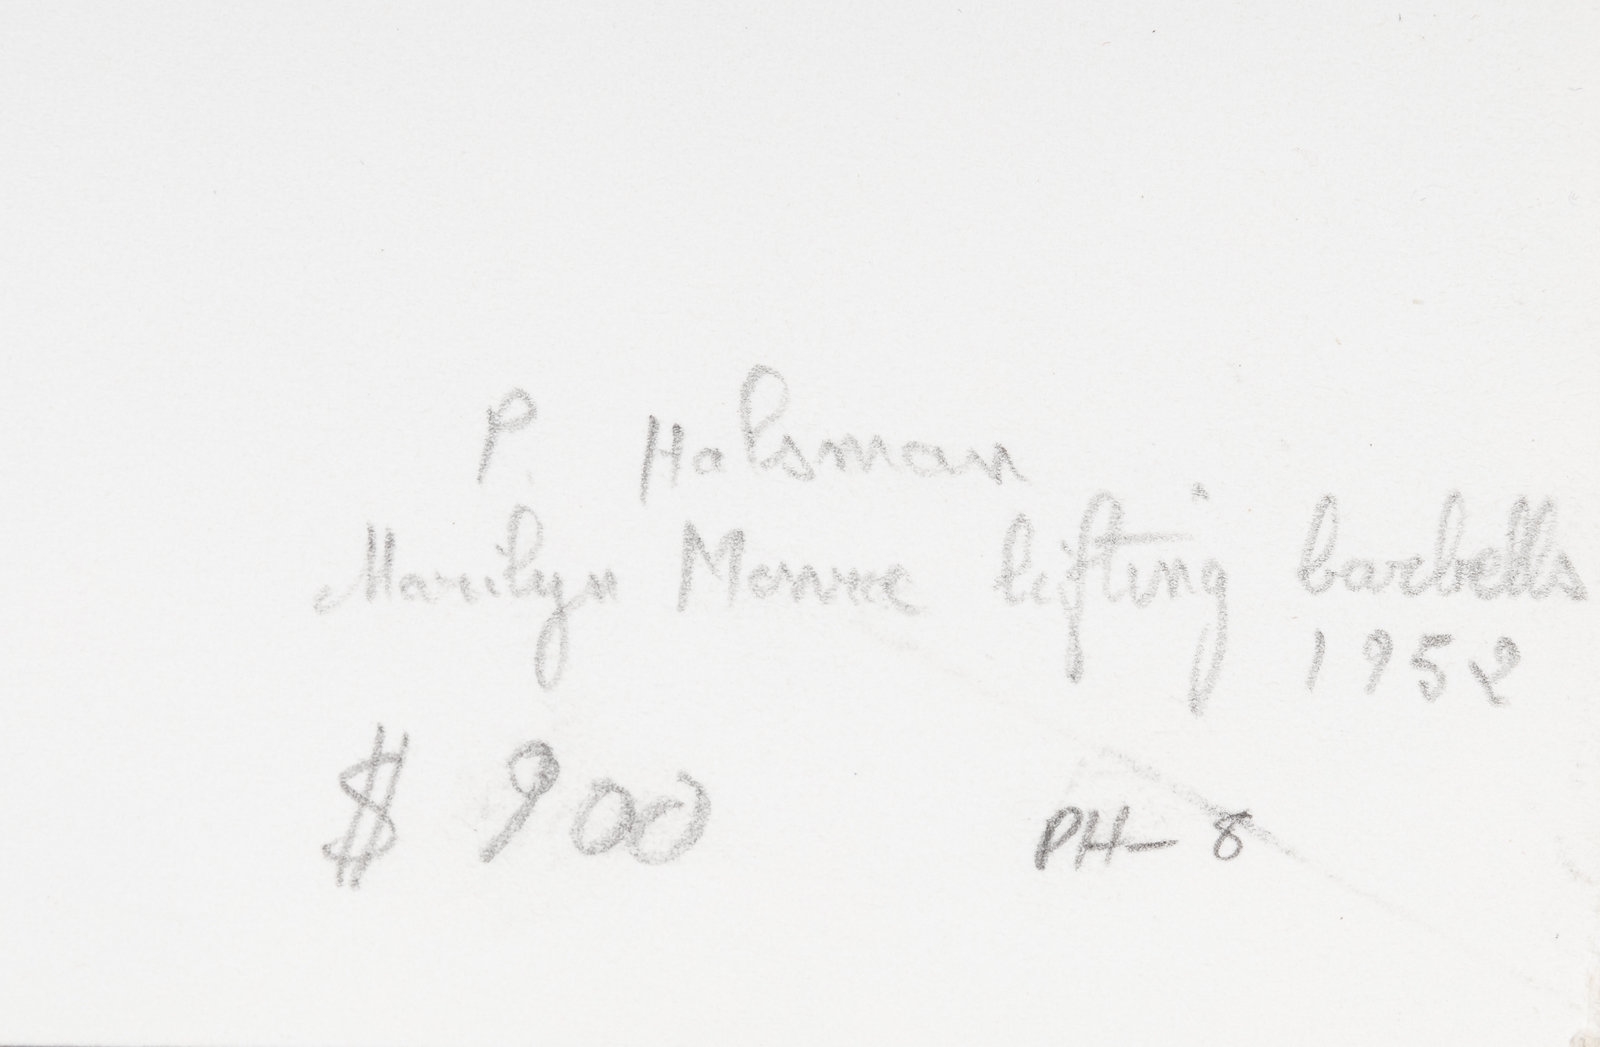 P. Halsman
Marilyn Monroe lifting barbells
1952
$ 900
PH-8